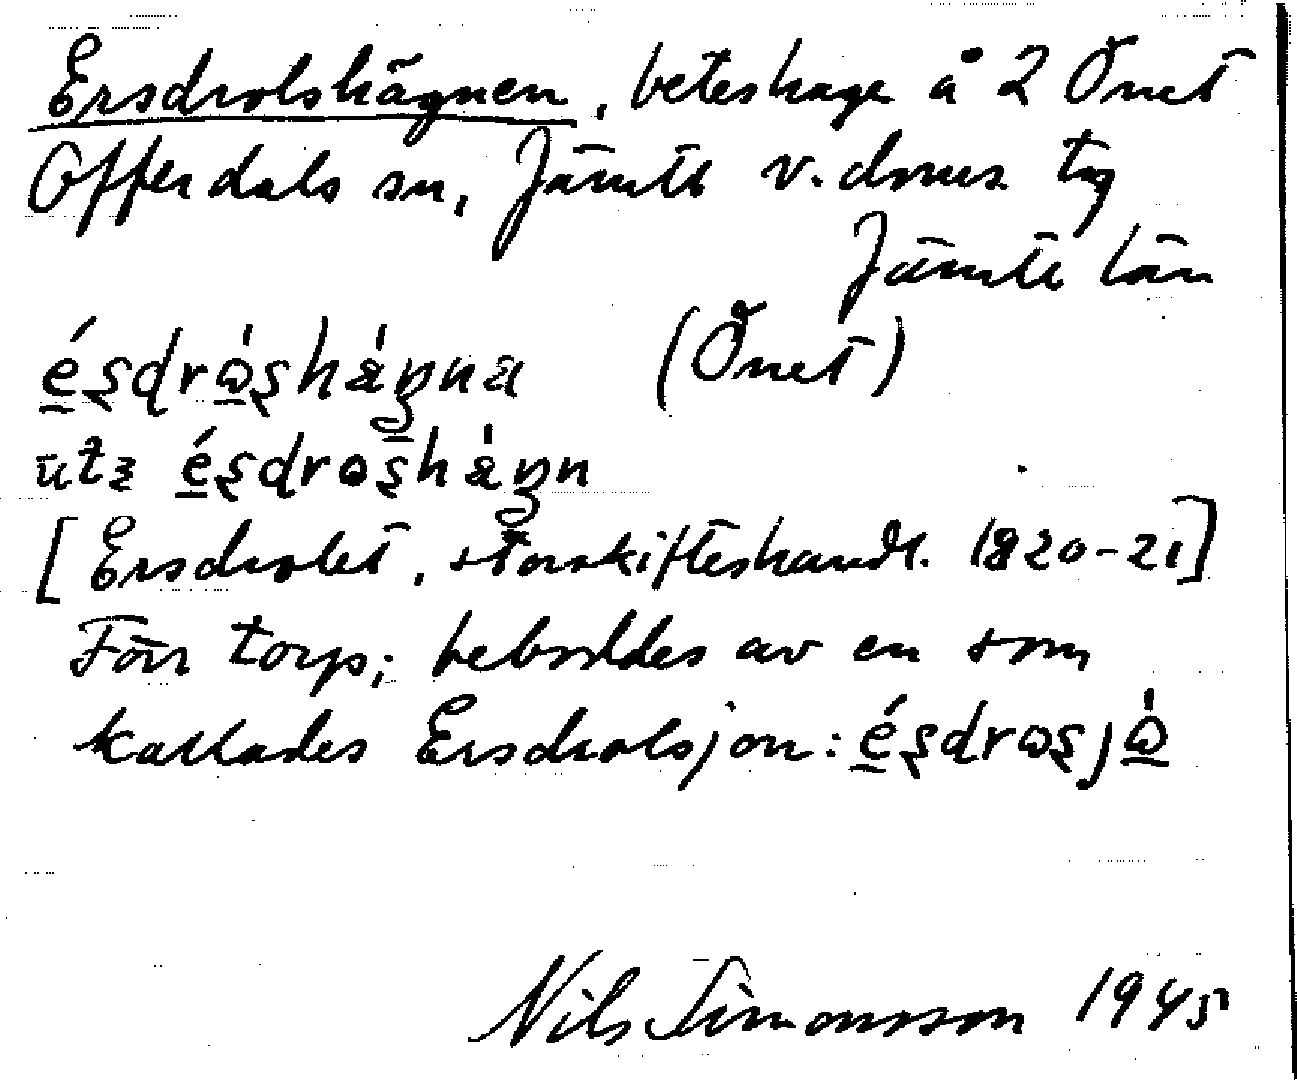 Ersdrolshägnen, beteshage å 2 Önet
Offerdals sn, Jämtl v. doms tg
Jämtl län
(Önet)
[Ersdrolet, storskifteshandl. 1820-21]
Förr torp; beboddes av en som
kallades Ersdrolsjon:
Nils Simonsson 1945